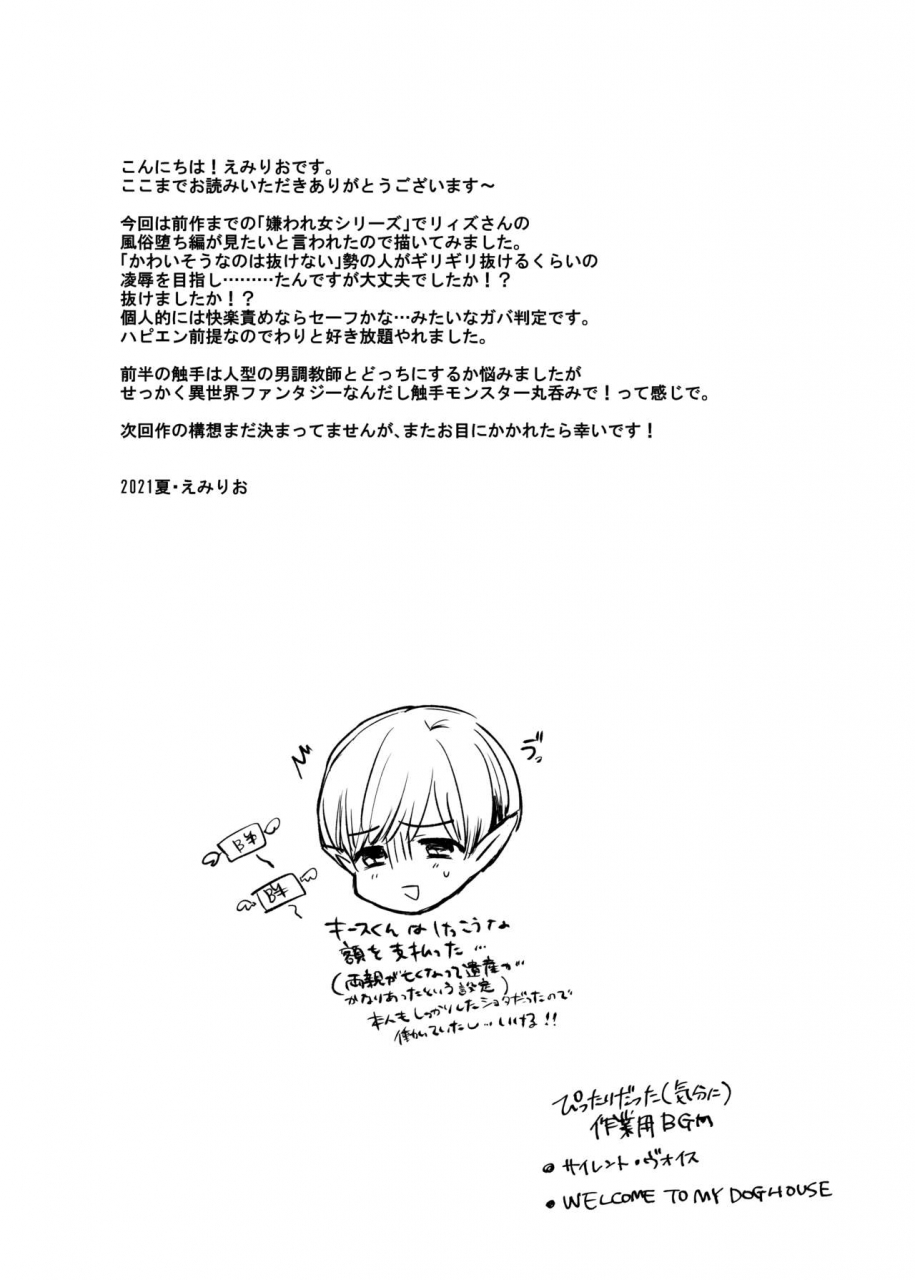 こんにちは！えみりおです。
ここまでお読みいただきありがとうございます～
今回は前作までの「嫌われ女シリーズ」でリィズさんの
風俗堕ち編が見たいと言われたので描いてみました。
「かわいそうなのは抜けない」勢の人がギリギリ抜けるくらいの
凌辱を目指し………たんですが大丈夫でしたか！？
抜けましたか！？
個人的には快楽責めならセーフかな…みたいなガバ判定です。
ハピエン前提なのでわりと好き放題やれました。
前半の触手は人型の男調教師とどっちにするか悩みましたが
せっかく異世界ファンタジーなんだし触手モンスター丸呑みで！って感じで。
次回作の構想まだ決まってませんが、またお目にかかれたら幸いです！
2021夏・えみりお
ヴっ
キースくんはけっこうな
額を支払った…
（両親が亡くなって遺産が
かなりあったという設定）
本人もしっかりしたショタだったので
働いていたし…いける!!
ぴったりだった（気分に）
作業用BGM
・サイレント・ヴォイス
・WELCOME TO MY DOGHOUSE